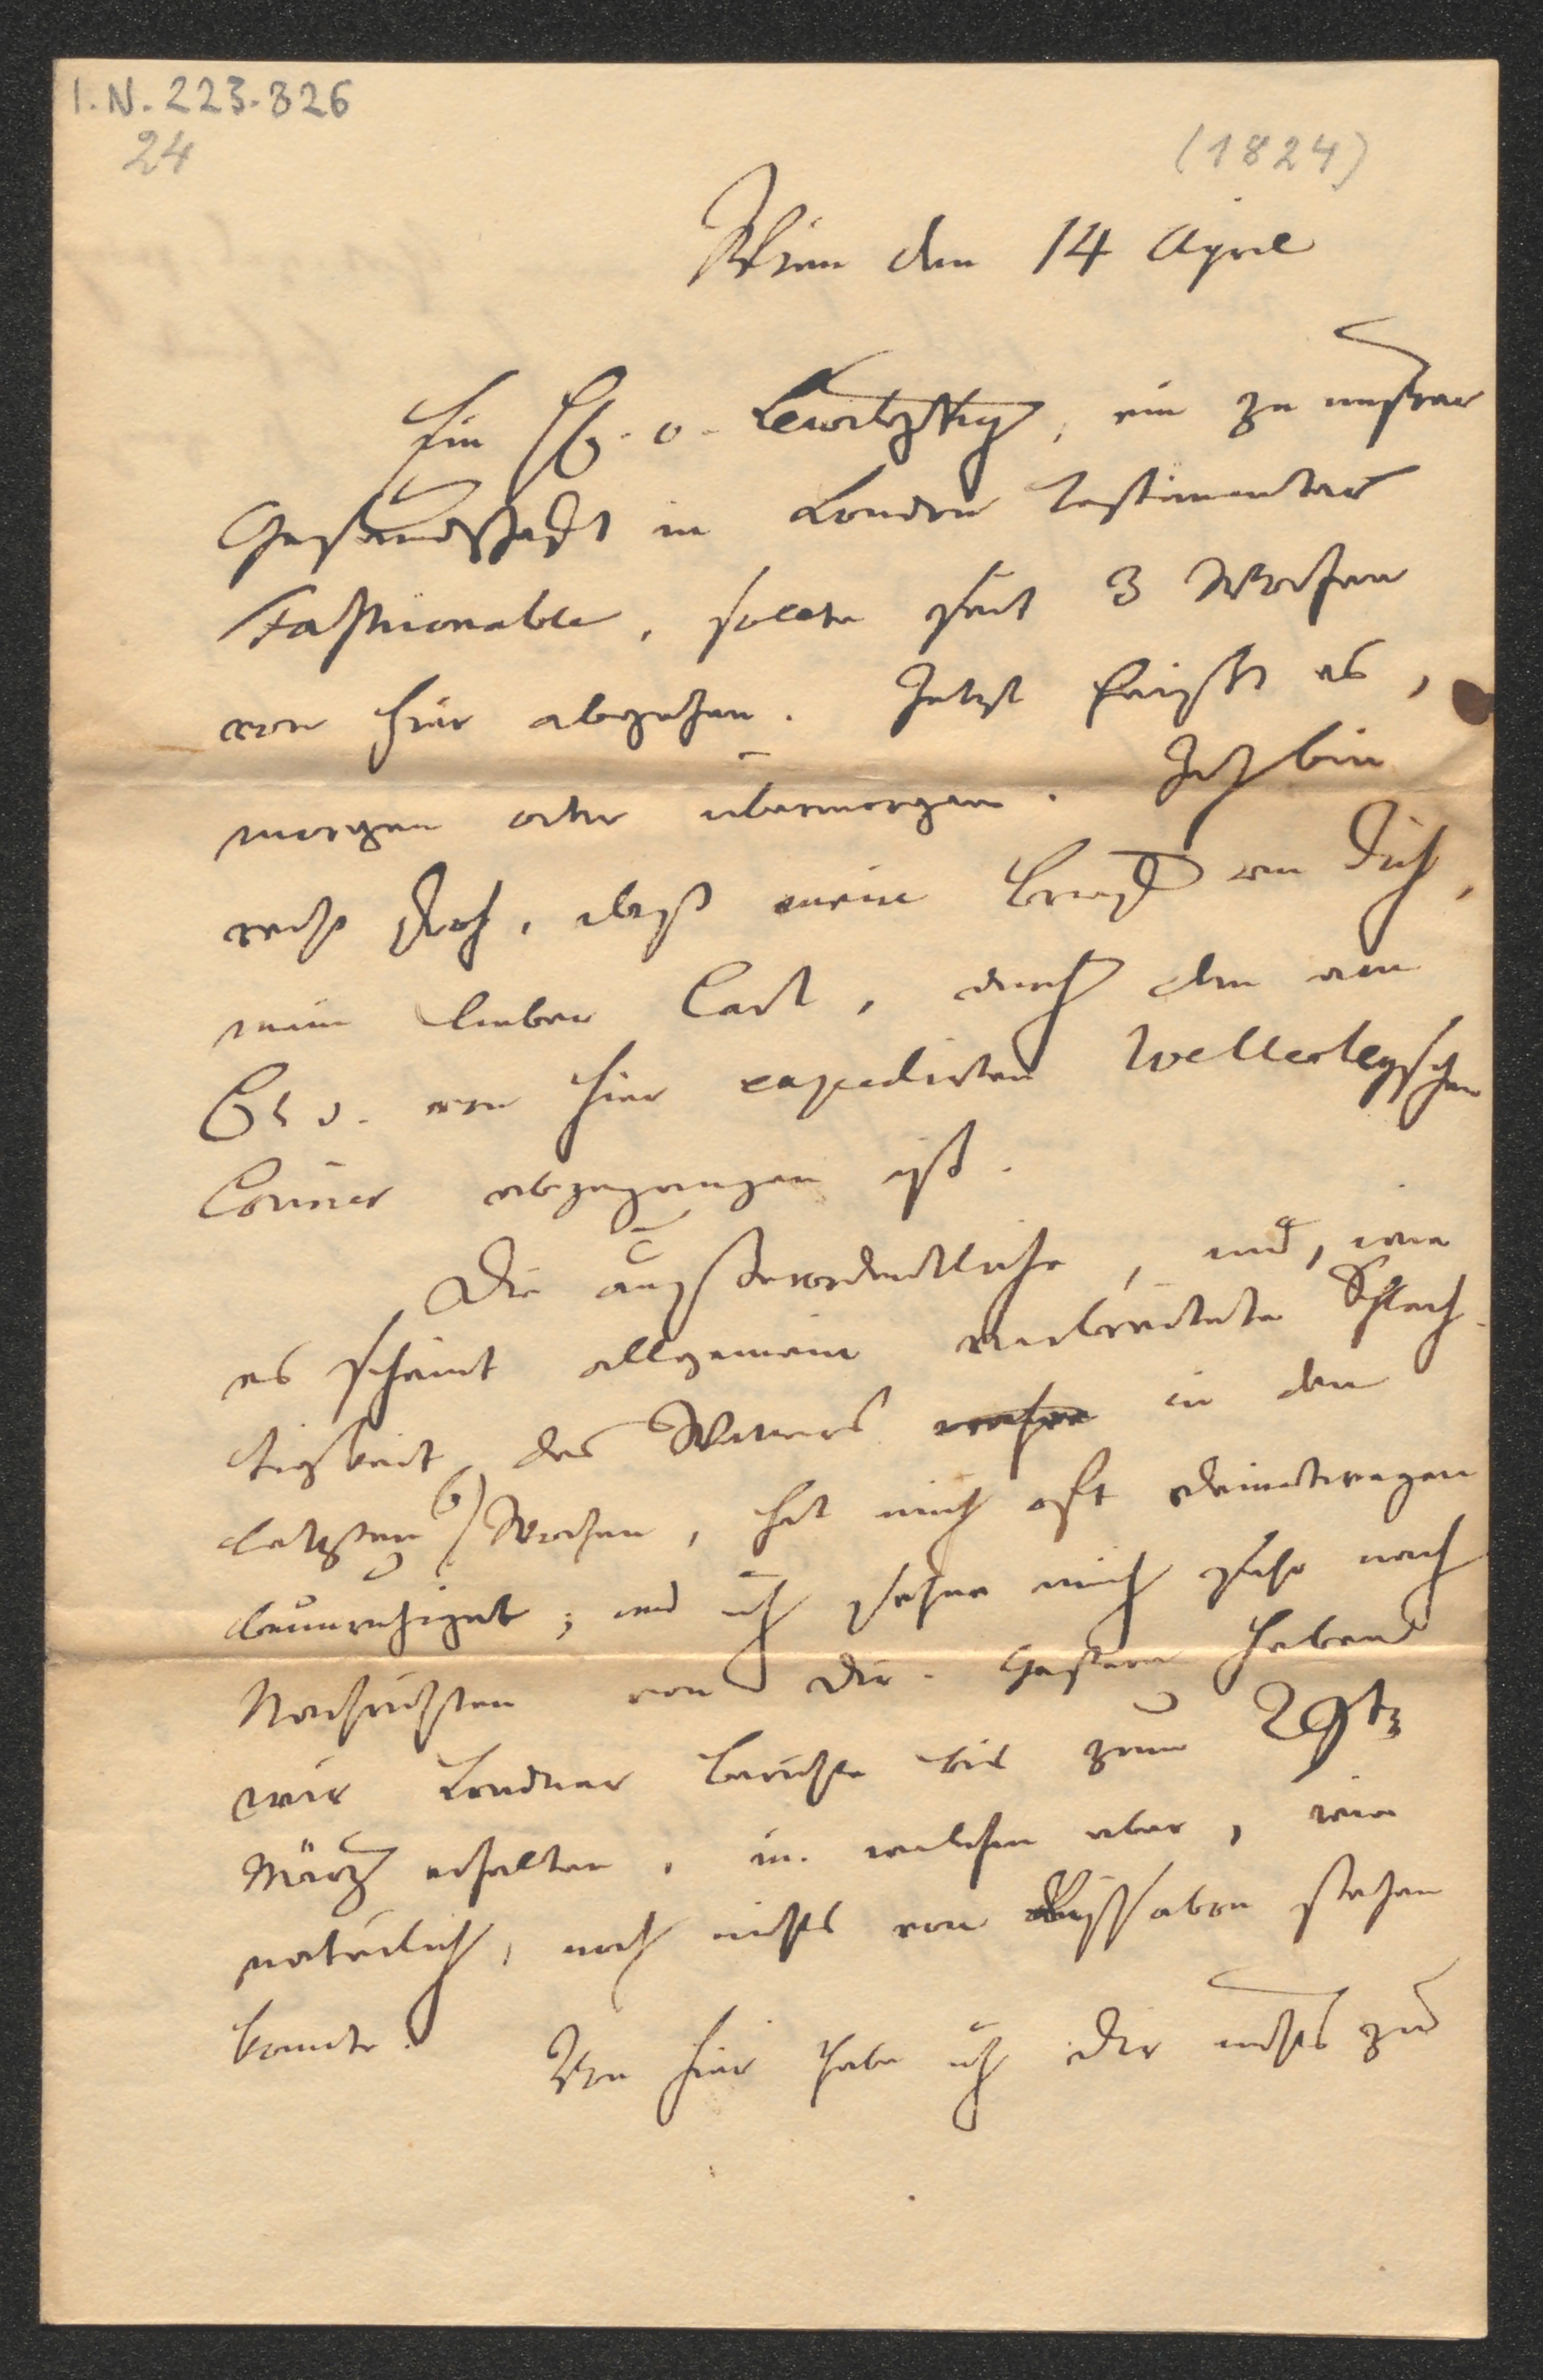 I.N. 223.326
24
(1824)
Wien den 14 April
Ein H. v. Lewitzky, ein zu unsrer
Gesandschaft in London bestimmter
Fashionable, sollte seit 3 Wochen
von hier abgehen. Jetzt heißt es,
morgen oder übermorgen. Ich bin
recht froh, daß mein Brief an Dich,
mein lieber Carl, durch den am
von hier expedirten Wellesleyschen
Courier abgegangen ist.
Die außerordentliche, und, wie
es scheint allgemein verbreitete Schlech-
tigkeit des Wetters in den
letzten 6 Wochen, hat mich oft deinetwegen
beunruhiget; und ich sehne mich sehr nach
Nachrichten von Dir. Gestern haben
wir Londner Berichte bis zum 29t
März erhalten, in welchen aber, wie
natürlich, noch nichts von stehen
konnte. Von hier habe ich Dir nichts zu